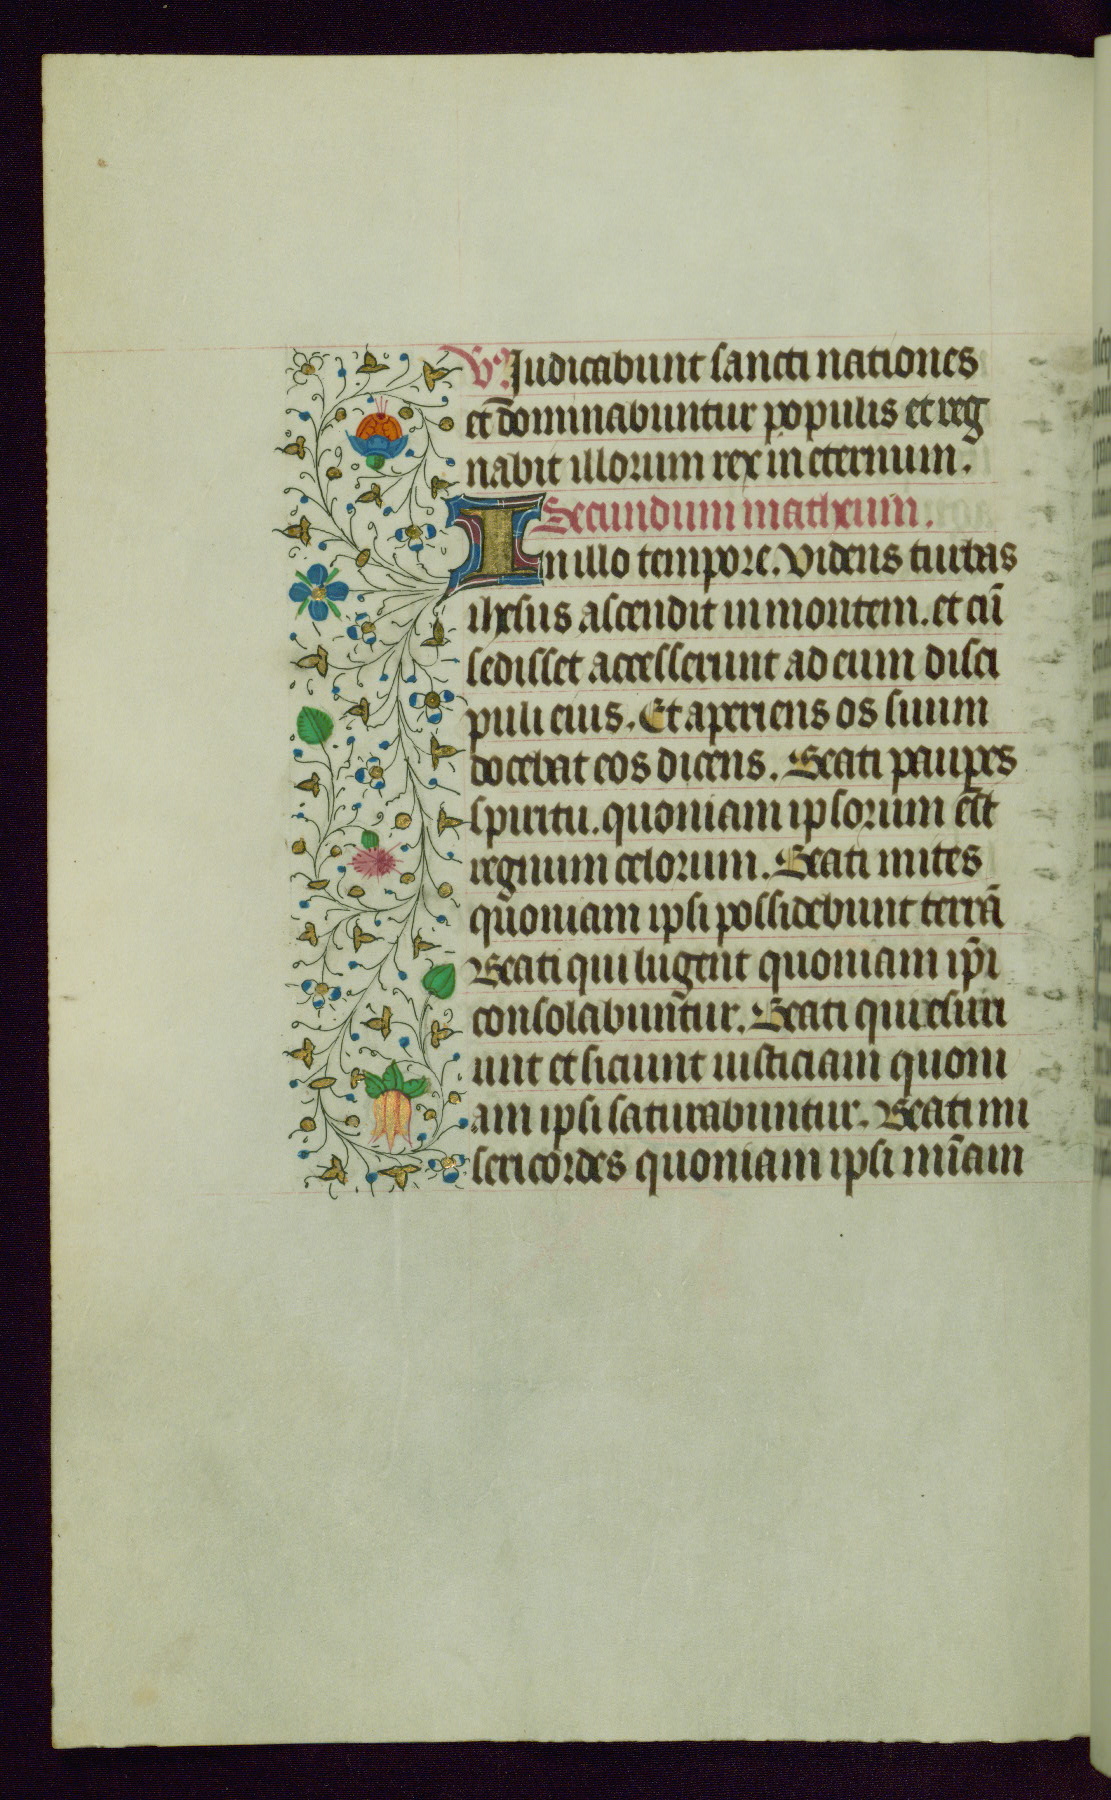 V̊. Judicabunt sancti nationes
et dominabuntur populis et reg
nabit illorum rex in eternum.
Secundum matheum.
In illo tempore. Videns turbas
ihesus ascendit in montem. et cū
sedisset accesserunt ad eum disci
puli eius. Et aperiens os suum
docebat eos dicens. Beati paupes
spiritu. quoniam ipsorum est
regnum celorum. Beati mites
quoniam ipsi possidebunt terrā
Beati qui lugent quoniam ip̄i
consolabuntur. Beati qui esuri
unt et siciunt iusticiam quoni
am ipsi saturabuntur. Beati mi
sericordes quoniam ipsi mīam